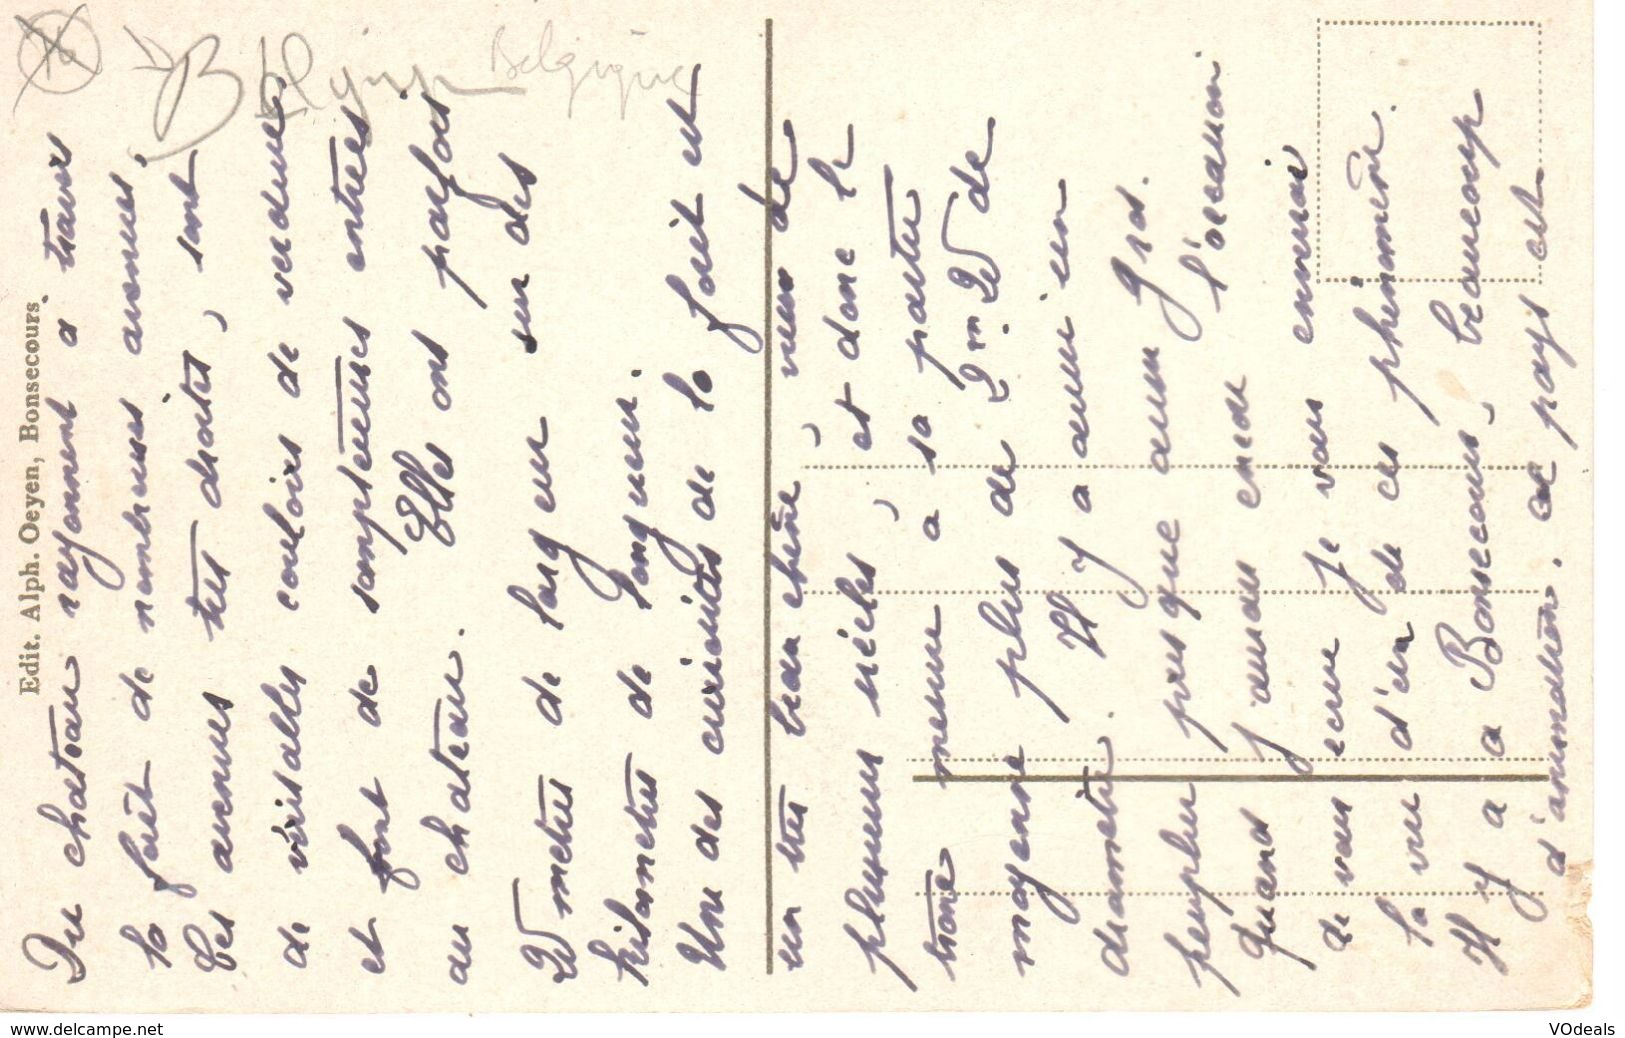 Belgique
Edit. Alph. Oeyen, Bonsecours
Du chateau rayonnent à travers
la forêt de nombreuses avenues.
Ces avenues très droites, sont
de véritables couloirs de verdure
et font de somptueuses entrées
au chateau. Elles ont parfois
20 metres de largeur sur des
kilometres de longueur.
Une des curiosités de la forêt est
un très beau chêne, vieux de
plusieurs siècles, et dont le
tronc mesure à sa partie
moyenne plus de 2 m. 20 de
diametre. Il y a aussi un
peuplier presque aussi gros.
Quand j'aurai encore l'occasion
de vous ecrire je vous enverrai
la vue d'un de ces phénomène.
Il y a a Bonsecours, beaucoup
d'animation. ce pays est
www.delcampe.net
VOdeals